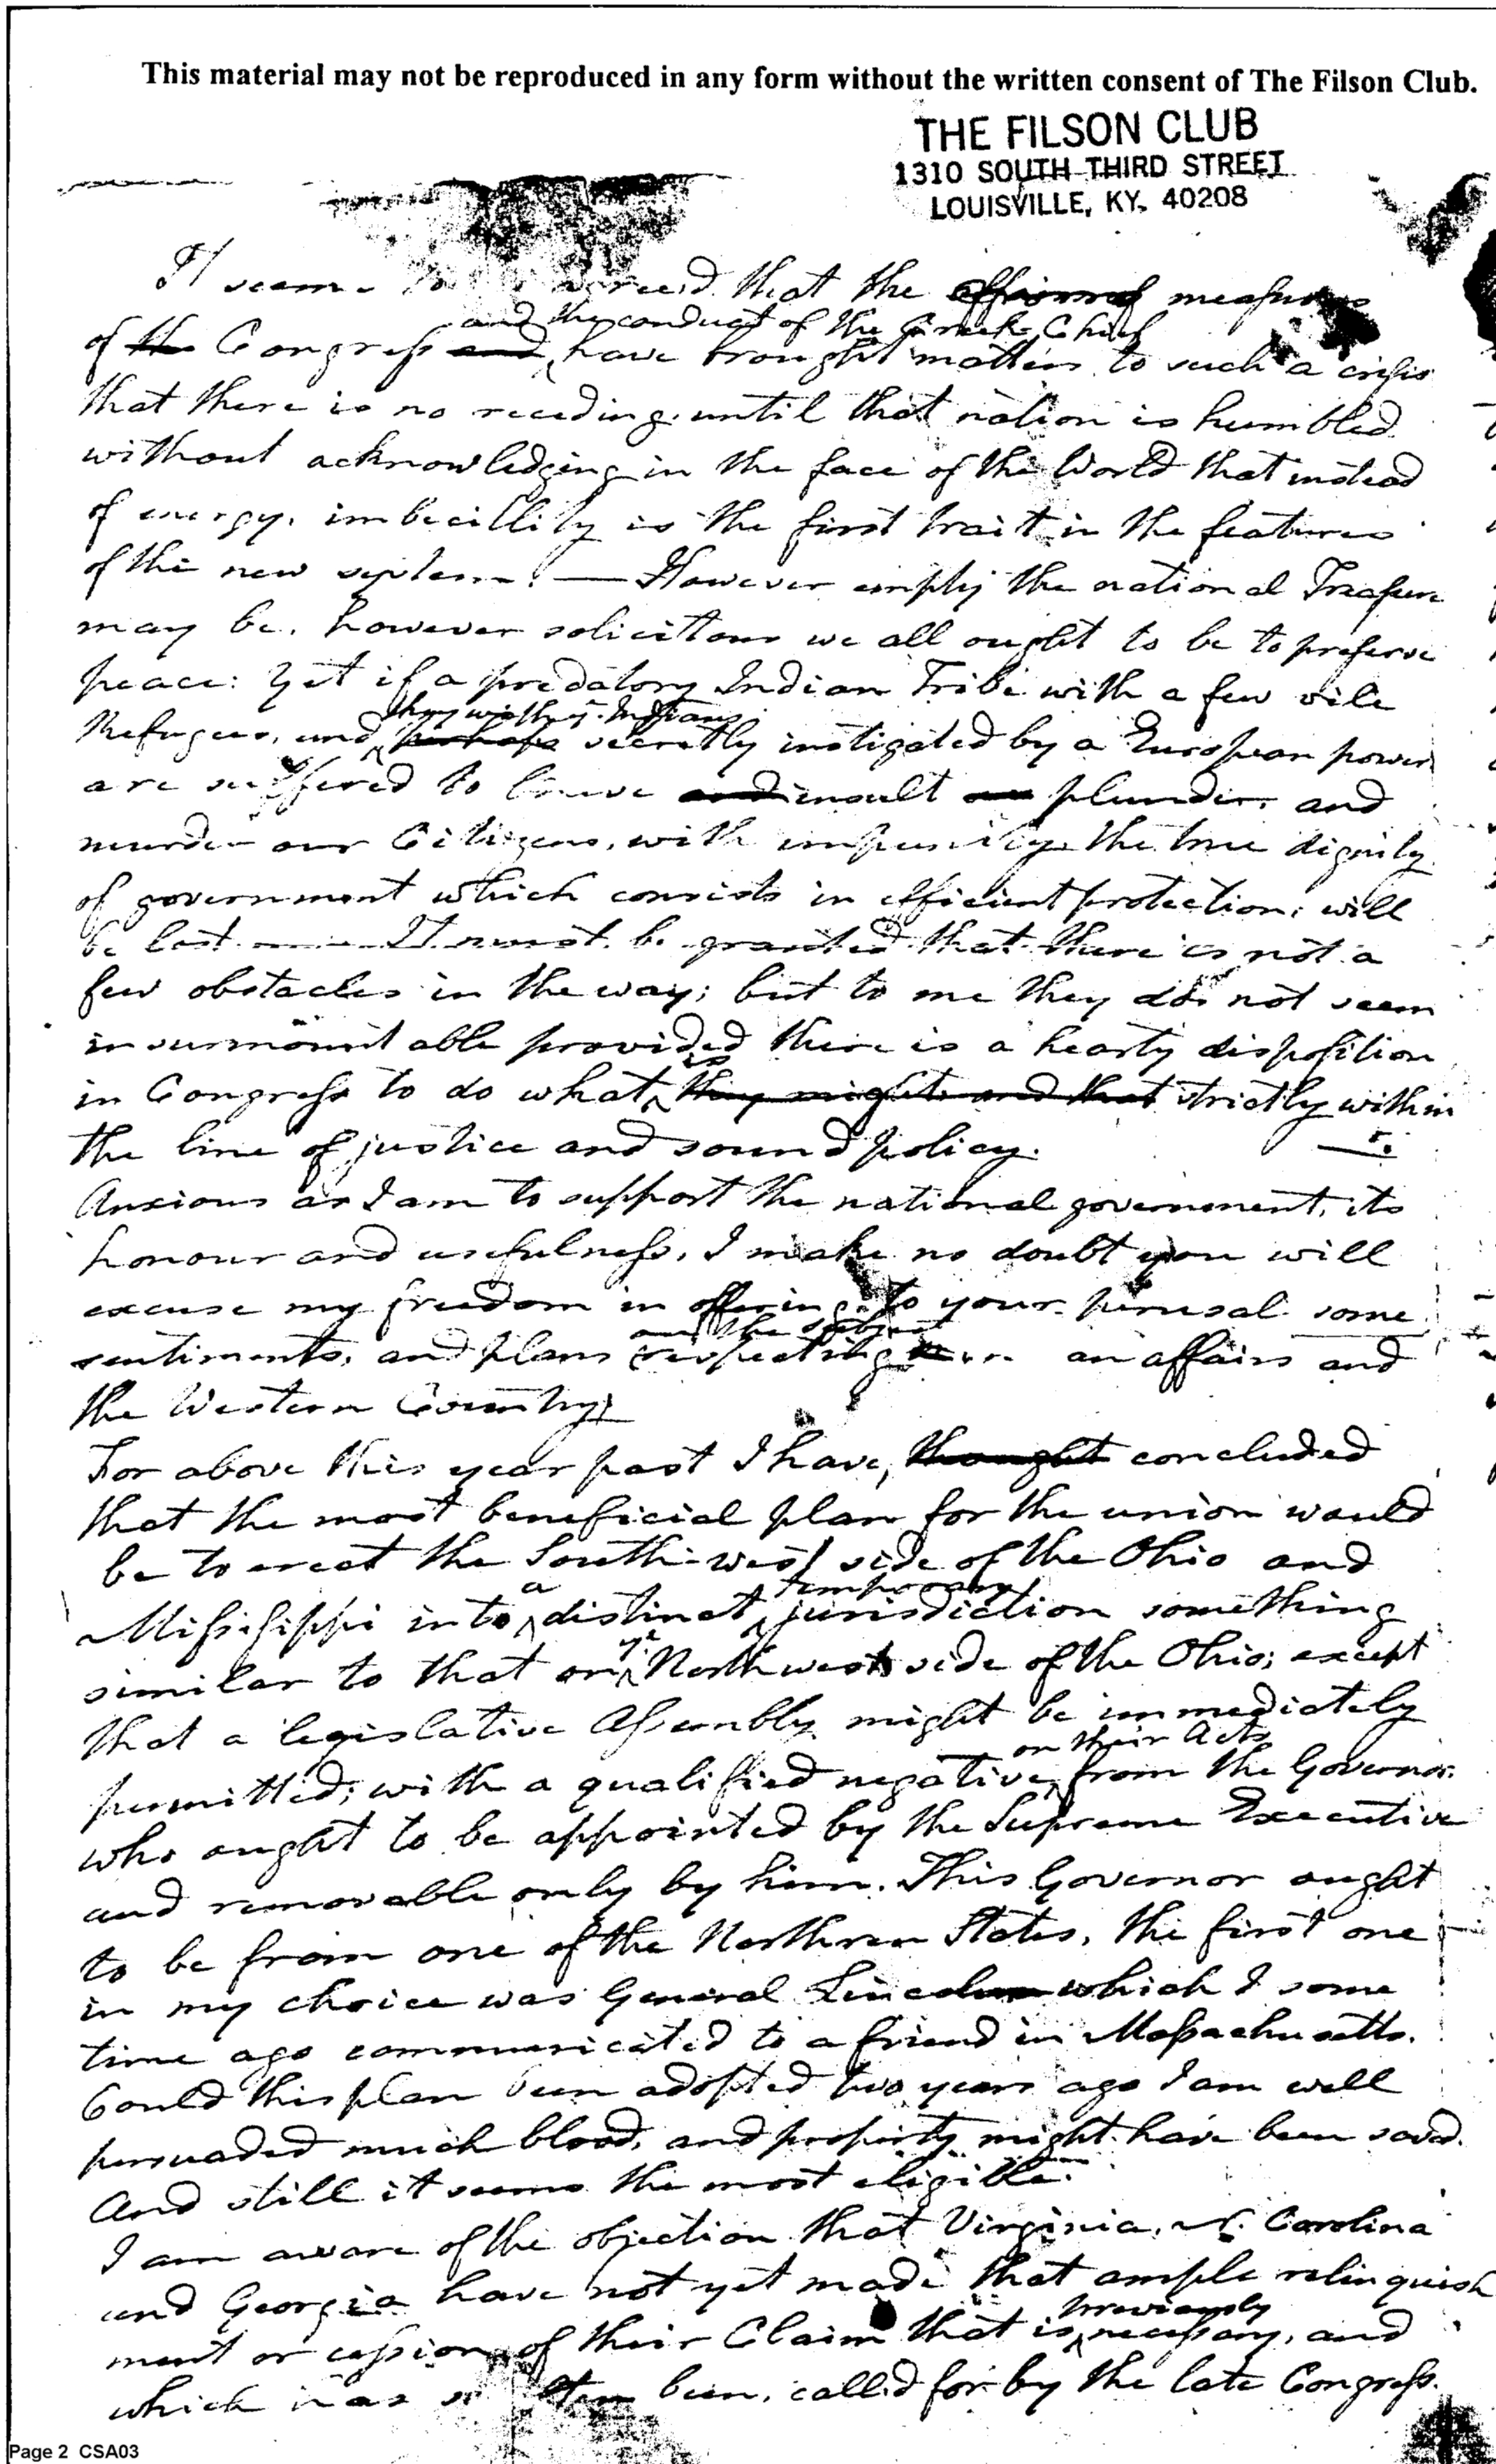 This material may not be reproduced in any form without the written consent of The Filson Club.
THE FILSON CLUB
1310 SOUTH THIRD STREET
LOUISVILLE, KY. 40208
It seems to agreed that the measures
and the conduct of the Creek Chief
of the Congress and have brought matters to such a crisis
that there is no receeding until that nation is humbled
without acknowledging in the face of the World that instead
of energy, imbecillity is the first trait in the features
of the new system. — However empty the national Treasure
may be, however solicitous we all ought to be to preserve
peace: yet if a predatory Indian Tribe with a few vile
Refugees, and perhaps secretly instigated by a European power
are suffered to brave and insult plunder, and
murder our Citizens, with impunity the true dignity
of government which consists in efficient protection; will
be lost. It must be granted that there is not a
few obstacles in the way; but to me they do not seem
insurmountable provided there is a hearty disposition
is
in Congress to do what they might and that strictly within
the line of justice and sound policy.
Anxious as I am to support the national government, its
honour and usefulness, I make no doubt you will
excuse my freedom in offering to your perusal some
on the subject
sentiments, and plans respecting an affairs and
the Western Country;
For above this year past I have, thought concluded
that the most beneficial plan for the union would
be to erect the South-west side of the Ohio and
a temporary
Missisippi into distinct jurisdiction something
ye
similar to that on Northwest side of the Ohio; except
that a legislative Assembly might be immediately
on their Acts
permitted; with a qualified negative from the Governor.
who ought to be appointed by the Supreme Executive
and removable only by him. This Governor ought
to be from one of the Northren States, the first one
in my choice was General Lincoln which I some
time ago communicated to a friend in Massachusetts.
Could this plan been adopted two years ago I am well
persuaded much blood, and property might have been saved.
And still it seems the most eligible.
I am aware of the objection that Virginia, N. Carolina
and Georgia have not yet made that ample relinquish
previously
ment or cession of their Claim that is necessary, and
which has been, called for by the late Congress.
Page 2 CSA03